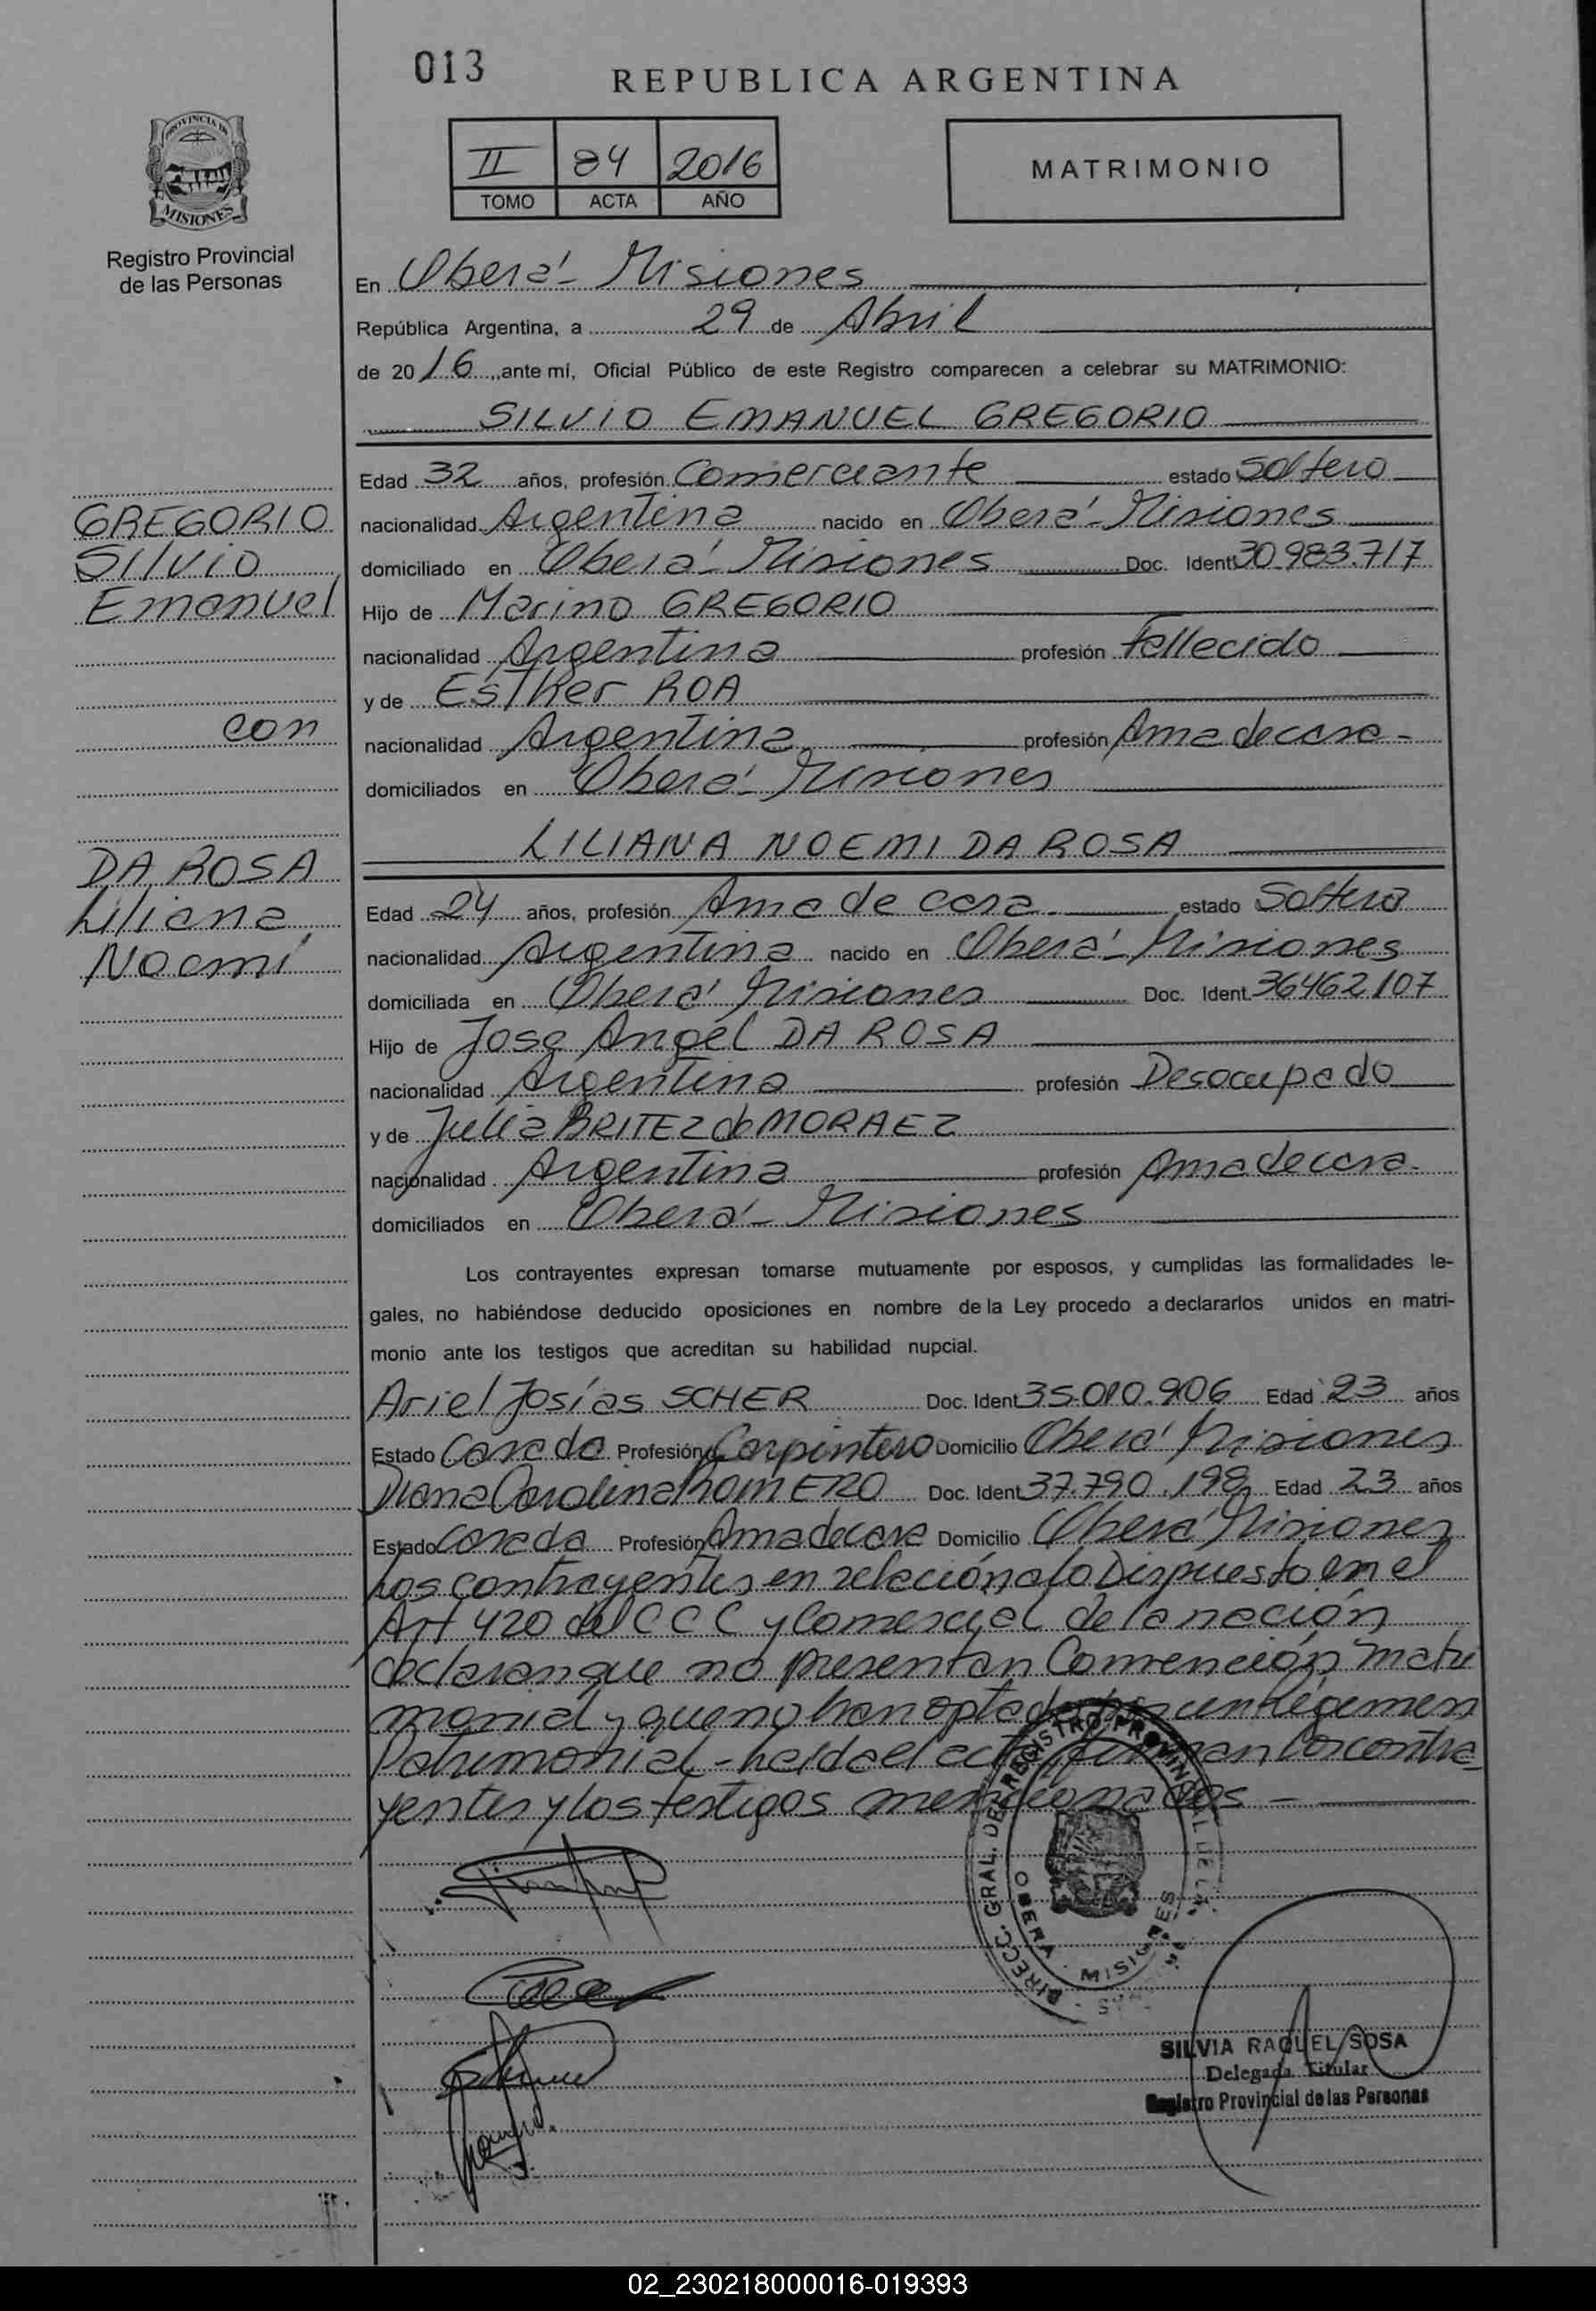 013
REPUBLICA ARGENTINA
PROVINCIA DE
MISIONES
Registro Provincial
de las Personas
II 84 2016
TOMO ACTA AÑO
MATRIMONIO
En Oberá - Misiones
República Argentina, a 29 de Abril
de 2016, ante mí, Oficial Público de este Registro comparecen a celebrar su MATRIMONIO:
SILVIO EMANUEL GREGORIO
Edad 32 años, profesión Comerciante estado Soltero
GREGORIO
nacionalidad Argentina nacido en Oberá - Misiones
Silvio
domiciliado en Oberá - Misiones Doc. Ident 30.983.717
Emanuel
Hijo de Marino GREGORIO
nacionalidad Argentina profesión Fallecido
y de Esther ROA
con
nacionalidad Argentina profesión Ama de casa -
domiciliados en Oberá - Misiones
LILIANA NOEMI DA ROSA
DA ROSA
Edad 24 años, profesión Ama de casa estado Soltera
Liliana
nacionalidad Argentina nacido en Oberá - Misiones
Noemí
domiciliada en Oberá Misiones Doc. Ident. 36462107
Hijo de Jose Angel DA ROSA
nacionalidad Argentina profesión Desocupado
y de Julia BRITEZ de MORAEZ
nacionalidad Argentina profesión Ama de casa.
domiciliados en Oberá - Misiones
Los contrayentes expresan tomarse mutuamente por esposos, y cumplidas las formalidades le-
gales, no habiéndose deducido oposiciones en nombre de la Ley procedo a declararlos unidos en matri-
monio ante los testigos que acreditan su habilidad nupcial.
Ariel Josías SCHER Doc. Ident 35.010.906 Edad 23 años
Estado Casado Profesión Carpintero Domicilio Oberá Misiones
Diana Carolina ROMERO Doc. Ident 37.790.198 Edad 23 años
Estado Casada Profesión Ama de casa Domicilio Oberá Misiones
Los contrayentes en relación a lo Dispuesto en el
Art 420 del C C C y Comercial de la nación
declaran que no presentan Convención matri
monial y que no han optado por un Régimen
Patrimonial - leída el acta firman los contra
yentes y los testigos mencionados -
DIRECC. GRAL. DEL REGISTRO PROVINCIAL DE LAS
OBERA - MISIONES
SILVIA RAQUEL SOSA
Delegada Titular
Registro Provincial de las Personas
02_230218000016-019393